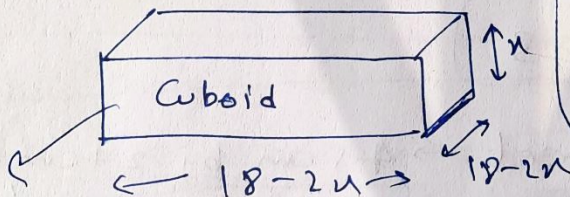 x
Cuboid
18-2x
18-2x